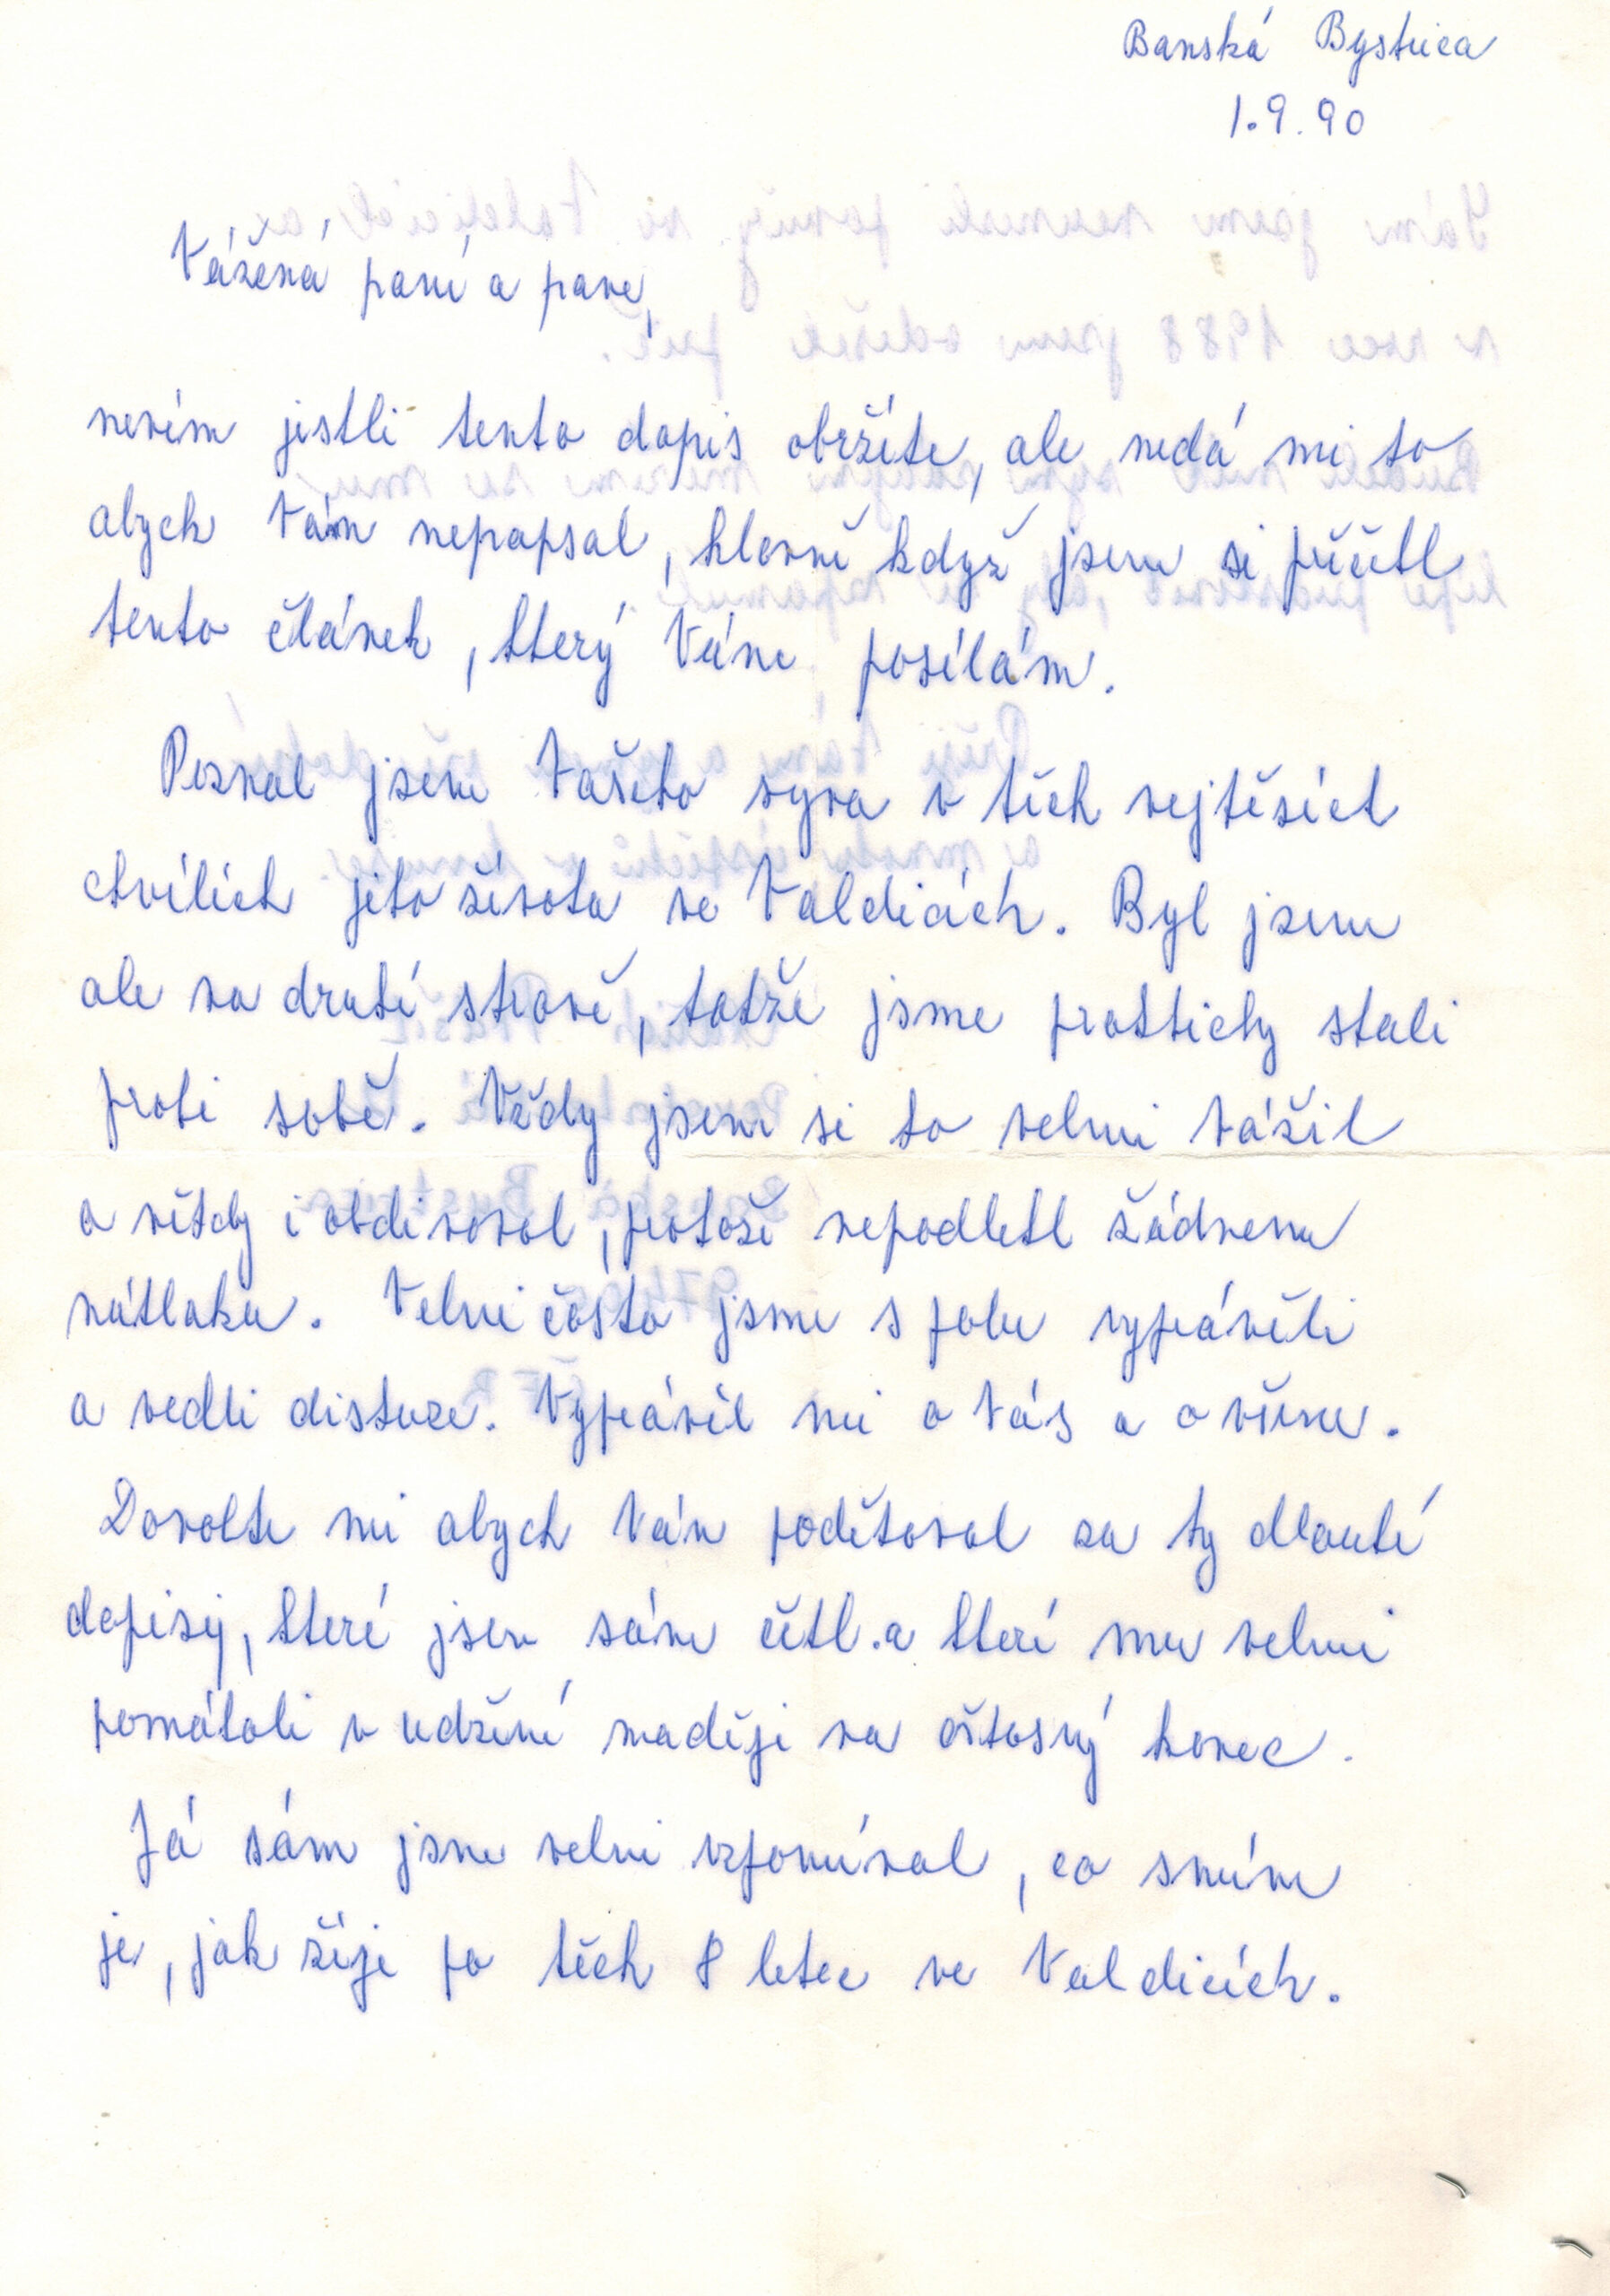 Banská Bystrica
1.9.90
Vážená paní a pane,
nevím jistli tento dopis obržíte, ale nedá mi to
abych Vám nepapsal, hlavně když jsem si přičetl
tento článek, který Vám posílám.
Poznal jsem Vašeho syna v těch nejtěších
chvílích jeho života ve Valdicích. Byl jsem
ale na druhé straně, totže jsme prakticky stali
proti sobě. Vždy jsem si ho velmi vážil
a někdy i obdivoval, protože nepodlehl žádnemu
nátlaku. Velmi často jsme s polu vyprávěli
a vedli diskuze. Vyprávěl mi o Vás a o všem.
Dovolte mi abych Vám poděkoval za ty dlouhé
dopisy, které jsem sám četl a které mu velmi
pomáhali v udržení naději na štasný konec.
Já sám jsme velmi vzpomínal, co sním
je, jak žije po těch 8 letec ve Valdicích.